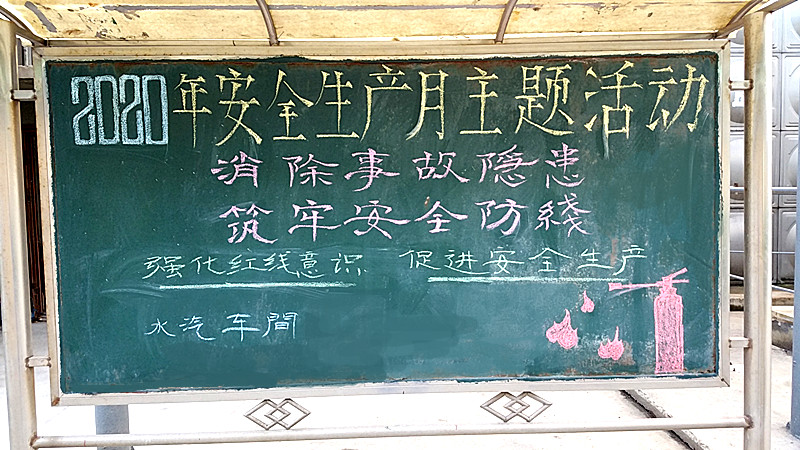 2020年安全生产月主题活动
消除事故隐患
筑牢安全防綫
强化红线意识 促进安全生产
水汽车間